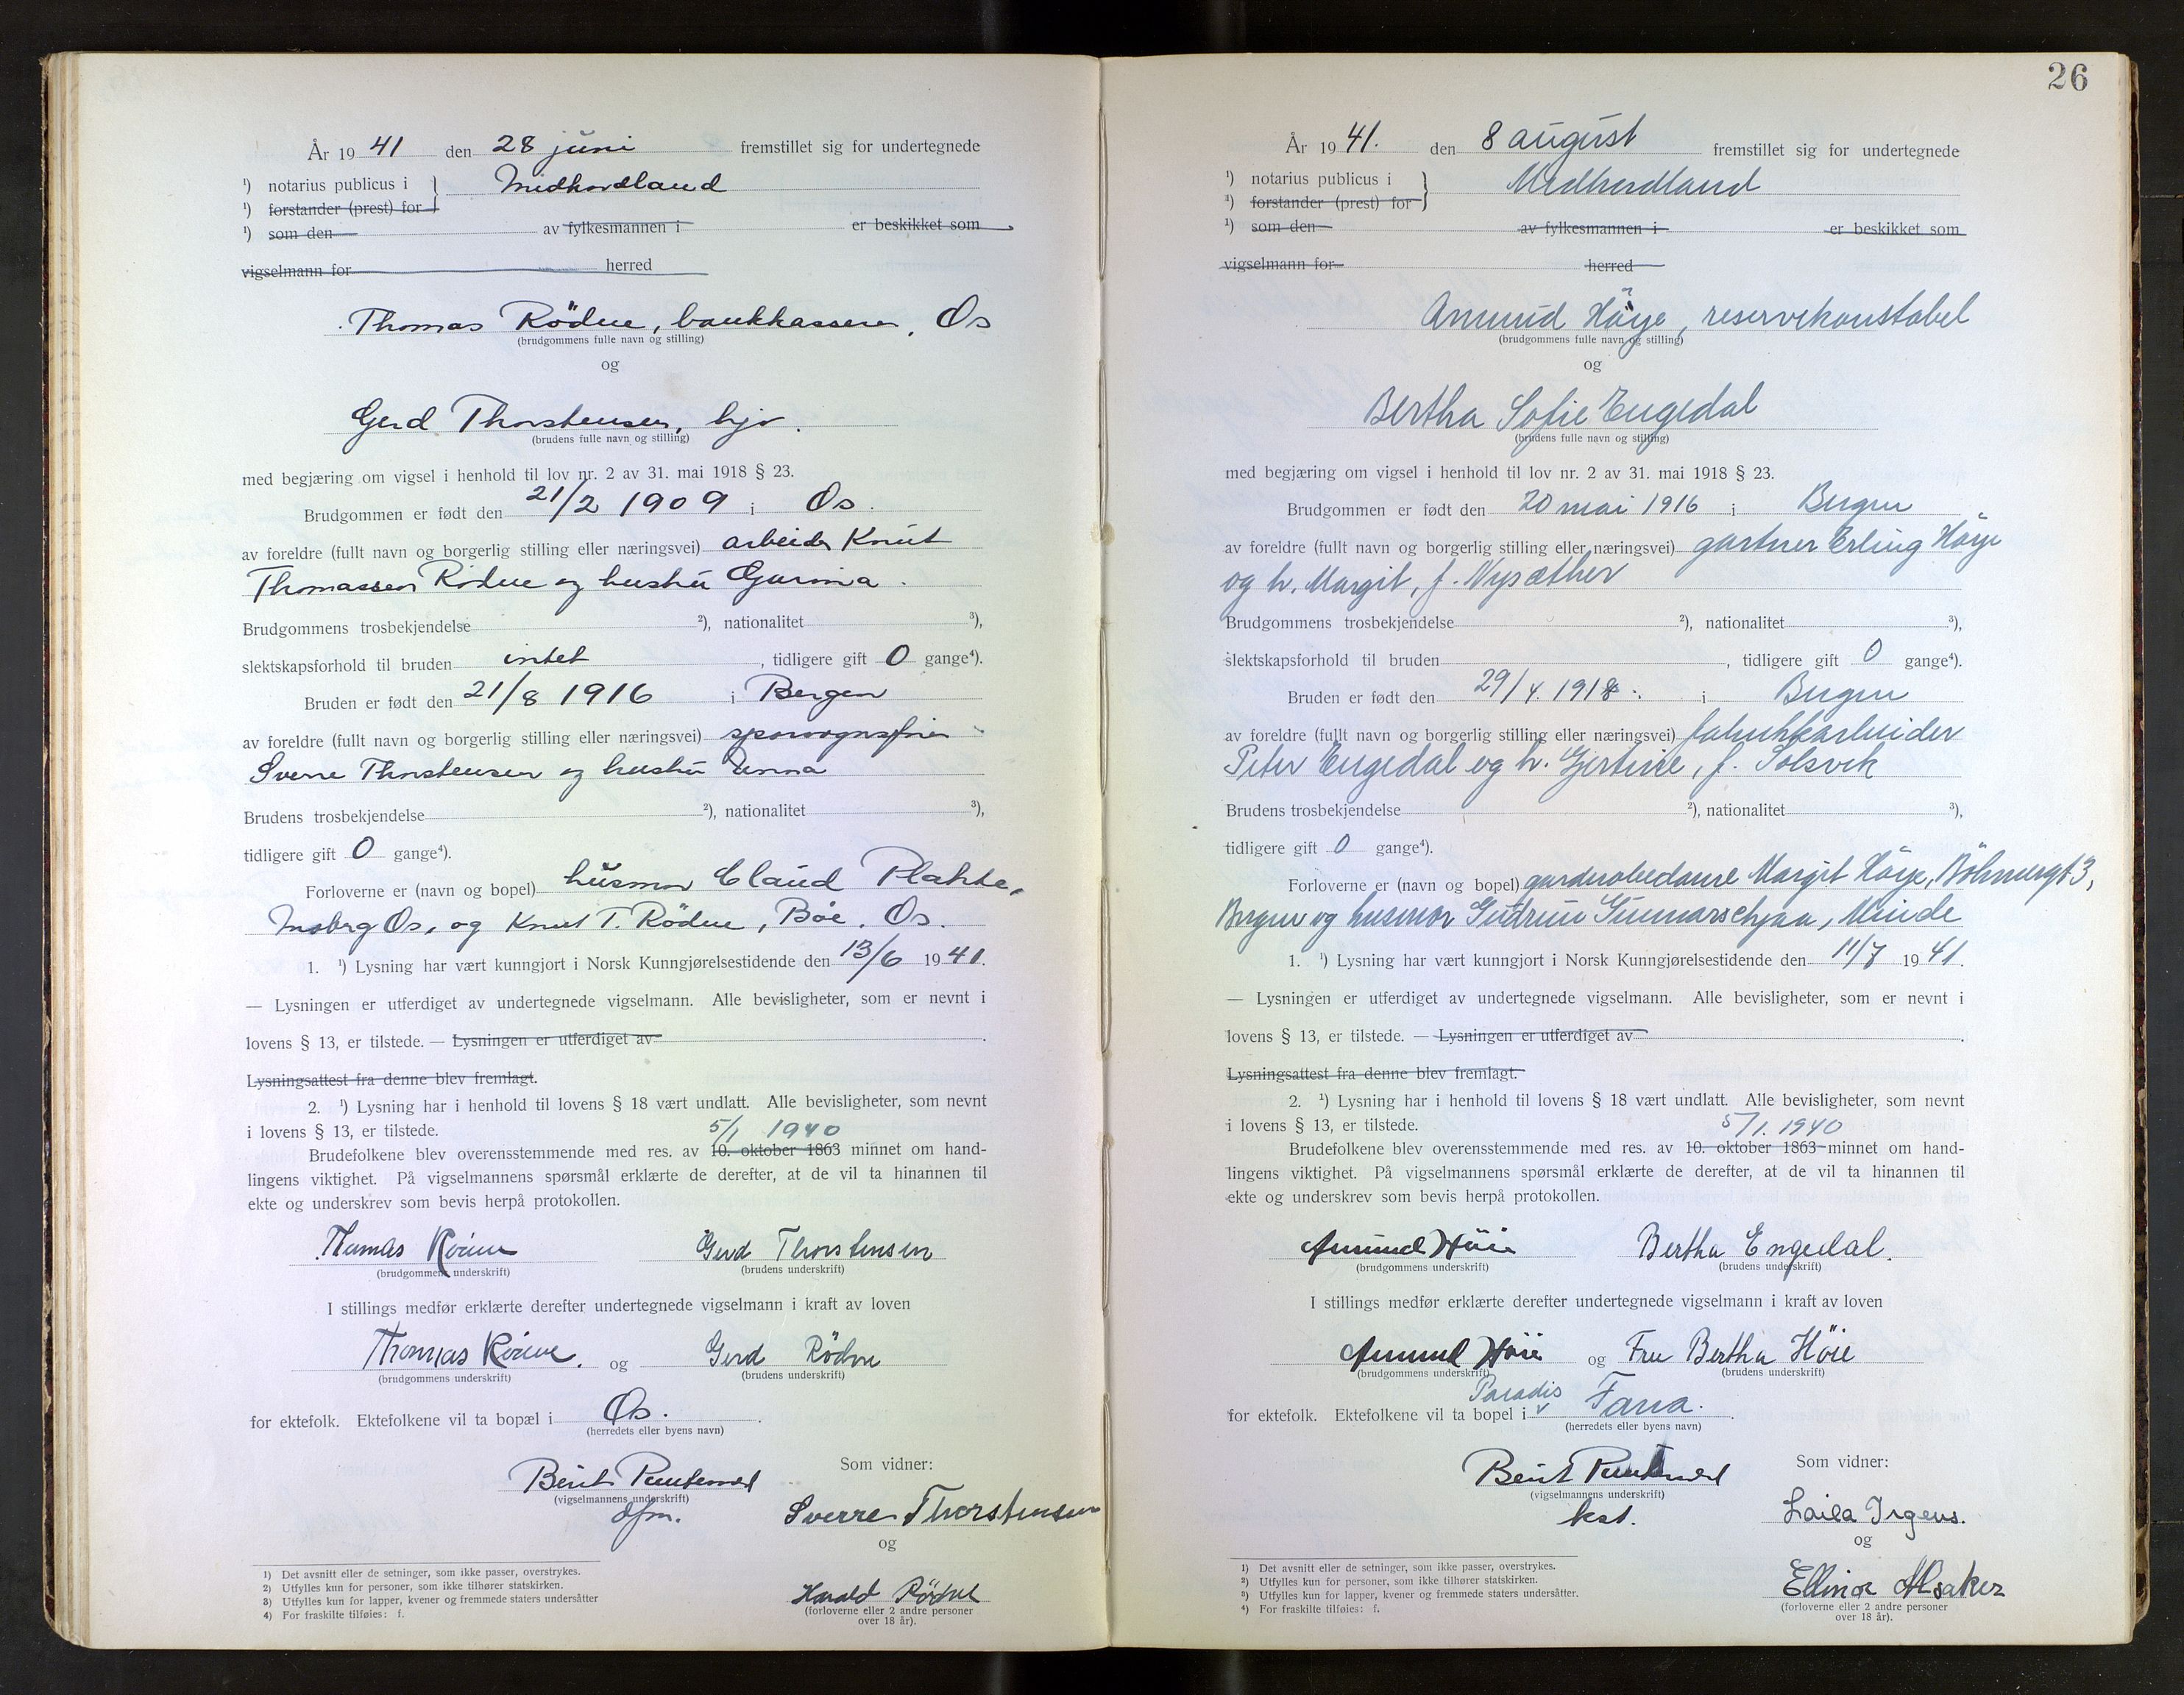 År 19 41 den 28 juni fremstillet sig for undertegnede
¹) notarius publicus i } Midhordland
¹) forstander (prest) for
¹) som den av fylkesmannen i er beskikket som
vigselmann for herred
Thomas Rödne, bankkasserer, Os
(brudgommens fulle navn og stilling)
og
Gerd Thorstensen, hjv.
(brudens fulle navn og stilling)
med begjæring om vigsel i henhold til lov nr. 2 av 31. mai 1918 § 23.
Brudgommen er født den 21/2 1909 i Os.
av foreldre (fullt navn og borgerlig stilling eller næringsvei) arbeider Knut
Thomassen Rödne og hustru Gurina.
Brudgommens trosbekjendelse ²), nationalitet ³),
slektskapsforhold til bruden intet, tidligere gift 0 gange⁴).
Bruden er født den 21/8 1916 i Bergen
av foreldre (fullt navn og borgerlig stilling eller næringsvei) sporvognsfører
Sverre Thorstensen og hustru Anna
Brudens trosbekjendelse ²), nationalitet ³),
tidligere gift 0 gange⁴).
Forloverne er (navn og bopel) husmor Claud Plahte,
Moberg Os, og Knut T. Rödne, Bøe, Os.
1. ¹) Lysning har vært kunngjort i Norsk Kunngjørelsestidende den 13/6 1941.
— Lysningen er utferdiget av undertegnede vigselmann. Alle bevisligheter, som er nevnt i
lovens § 13, er tilstede. — Lysningen er utferdiget av
Lysningsattest fra denne blev fremlagt.
2. ¹) Lysning har i henhold til lovens § 18 vært undlatt. Alle bevisligheter, som nevnt
i lovens § 13, er tilstede. 5/1 1940
Brudefolkene blev overensstemmende med res. av 10. oktober 1863 minnet om hand-
lingens viktighet. På vigselmannens spørsmål erklærte de derefter, at de vil ta hinannen til
ekte og underskrev som bevis herpå protokollen.
Thomas Rödne Gerd Thorstensen
(brudgommens underskrift) (brudens underskrift)
I stillings medfør erklærte derefter undertegnede vigselmann i kraft av loven
Thomas Rödne. og Gerd Rödne
(brudgommens underskrift) (brudens underskrift)
for ektefolk. Ektefolkene vil ta bopæl i Os.
(herredets eller byens navn)
Som vidner:
Berit
(vigselmannens underskrift)
dfm.
Sverre Thorstensen
og
Harald Rödne
(forloverne eller 2 andre personer
over 18 år).
1) Det avsnitt eller de setninger, som ikke passer, overstrykes.
2) Utfylles kun for personer, som ikke tilhører statskirken.
3) Utfylles kun for lapper, kvener og fremmede staters undersåtter
4) For fraskilte tilføies: f.
26
År 19 41. den 8 august fremstillet sig for undertegnede
¹) notarius publicus i } Midhordland
¹) forstander (prest) for
¹) som den av fylkesmannen i er beskikket som
vigselmann for herred
Amund Höye, reservekonstabel
(brudgommens fulle navn og stilling)
og
Bertha Sofie Engedal
(brudens fulle navn og stilling)
med begjæring om vigsel i henhold til lov nr. 2 av 31. mai 1918 § 23.
Brudgommen er født den 20 mai 1916 i Bergen
av foreldre (fullt navn og borgerlig stilling eller næringsvei) gartner Erling Höye
og h. Margit, f. Nysæther
Brudgommens trosbekjendelse ²), nationalitet ³),
slektskapsforhold til bruden, tidligere gift 0 gange⁴).
Bruden er født den 29/4. 1918. i Bergen
av foreldre (fullt navn og borgerlig stilling eller næringsvei) fabrikkarbeider
Peter Engedal og h. Gjertine, f. Solsvik
Brudens trosbekjendelse ²), nationalitet ³),
tidligere gift 0 gange⁴).
Forloverne er (navn og bopel) garderobedame Margit Höye, Böhmergt 3,
Bergen og husmor Gudrun Gunnarschjaa, Minde
1. ¹) Lysning har vært kunngjort i Norsk Kunngjørelsestidende den 11/7 1941.
— Lysningen er utferdiget av undertegnede vigselmann. Alle bevisligheter, som er nevnt i
lovens § 13, er tilstede. — Lysningen er utferdiget av
Lysningsattest fra denne blev fremlagt.
2. ¹) Lysning har i henhold til lovens § 18 vært undlatt. Alle bevisligheter, som nevnt
i lovens § 13, er tilstede. 5/1. 1940
Brudefolkene blev overensstemmende med res. av 10. oktober 1863 minnet om hand-
lingens viktighet. På vigselmannens spørsmål erklærte de derefter, at de vil ta hinannen til
ekte og underskrev som bevis herpå protokollen.
Amund Höie Bertha Engedal.
(brudgommens underskrift) (brudens underskrift)
I stillings medfør erklærte derefter undertegnede vigselmann i kraft av loven
Amund Höie og Fru Bertha Höie
(brudgommens underskrift) (brudens underskrift)
for ektefolk. Ektefolkene vil ta bopel i Paradis Fana.
(herredets eller byens navn)
Som vidner:
Berit
(vigselmannens underskrift)
kst.
Laila Irgens.
og
Ellinor Alsaker
(forloverne eller 2 andre personer
over 18 år).
1) Det avsnitt eller de setninger, som ikke passer, overstrykes.
2) Utfylles kun for personer, som ikke tilhører statskirken.
3) Utfylles kun for lapper, kvener og fremmede staters undersåtter.
4) For fraskilte tilføies: f.